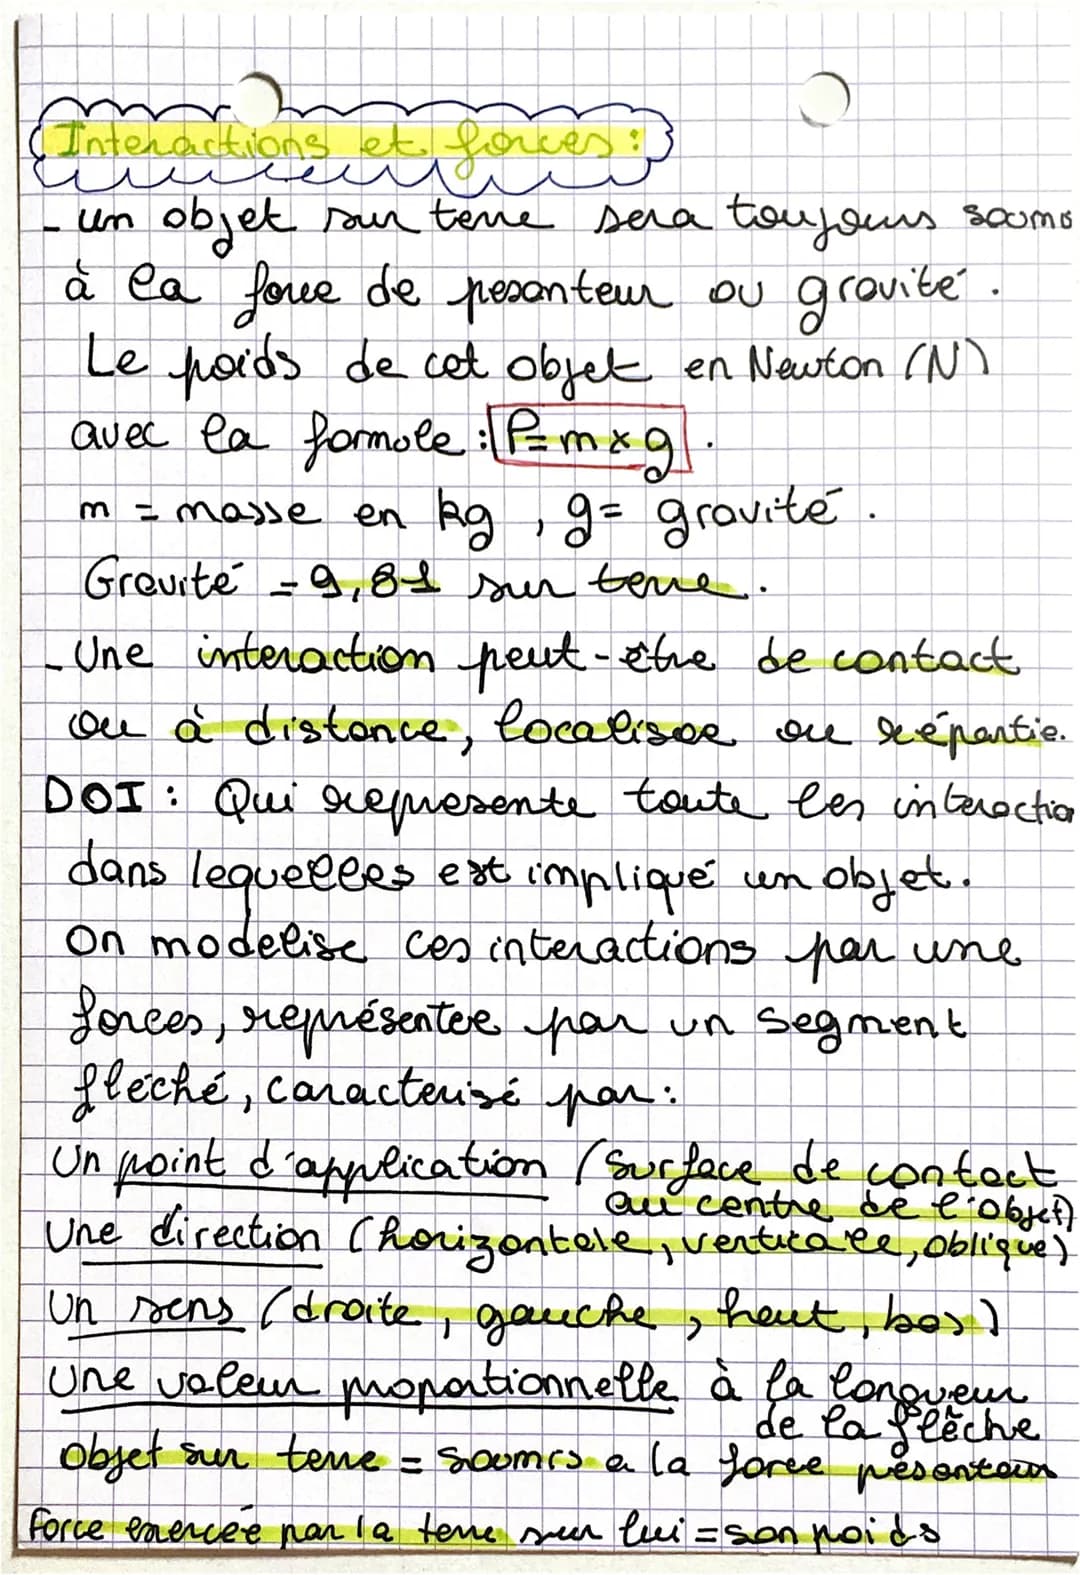 Interactions et forces :
- un objet sur terre sera toujours soumis
à la force de pesanteur ou gravité .
Le poids de cet objet en Newton (N)
avec la formole : P= m x g .
m = masse en kg , g= gravité .
Gravité = 9,81 sur terre .
- Une interaction peut-être de contact
ou à distance, localisée ou répartie.
DOI : Qui représente toute les interaction
dans lequelles est impliqué un objet .
On modelise ces interactions par une
forces, représentée par un segment
fléché, caracterisé par :
Un point d'application (surface de contact
au centre de l'objet)
Une direction (horizontale, verticale, oblique)
Un sens (droite , gauche , haut , bas)
Une valeur proportionnelle à la longueur
de la flêche
Objet sur terre = soumis a la force pesanteur
force exercée par la terre sur lui = son poids